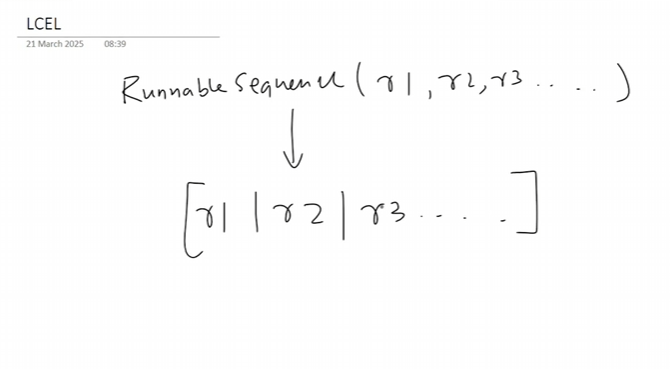 LCEL
21 March 2025 08:39
Runnable Sequence (r1, r2, r3 .. ...)
[r1 | r2 | r3 .... .]